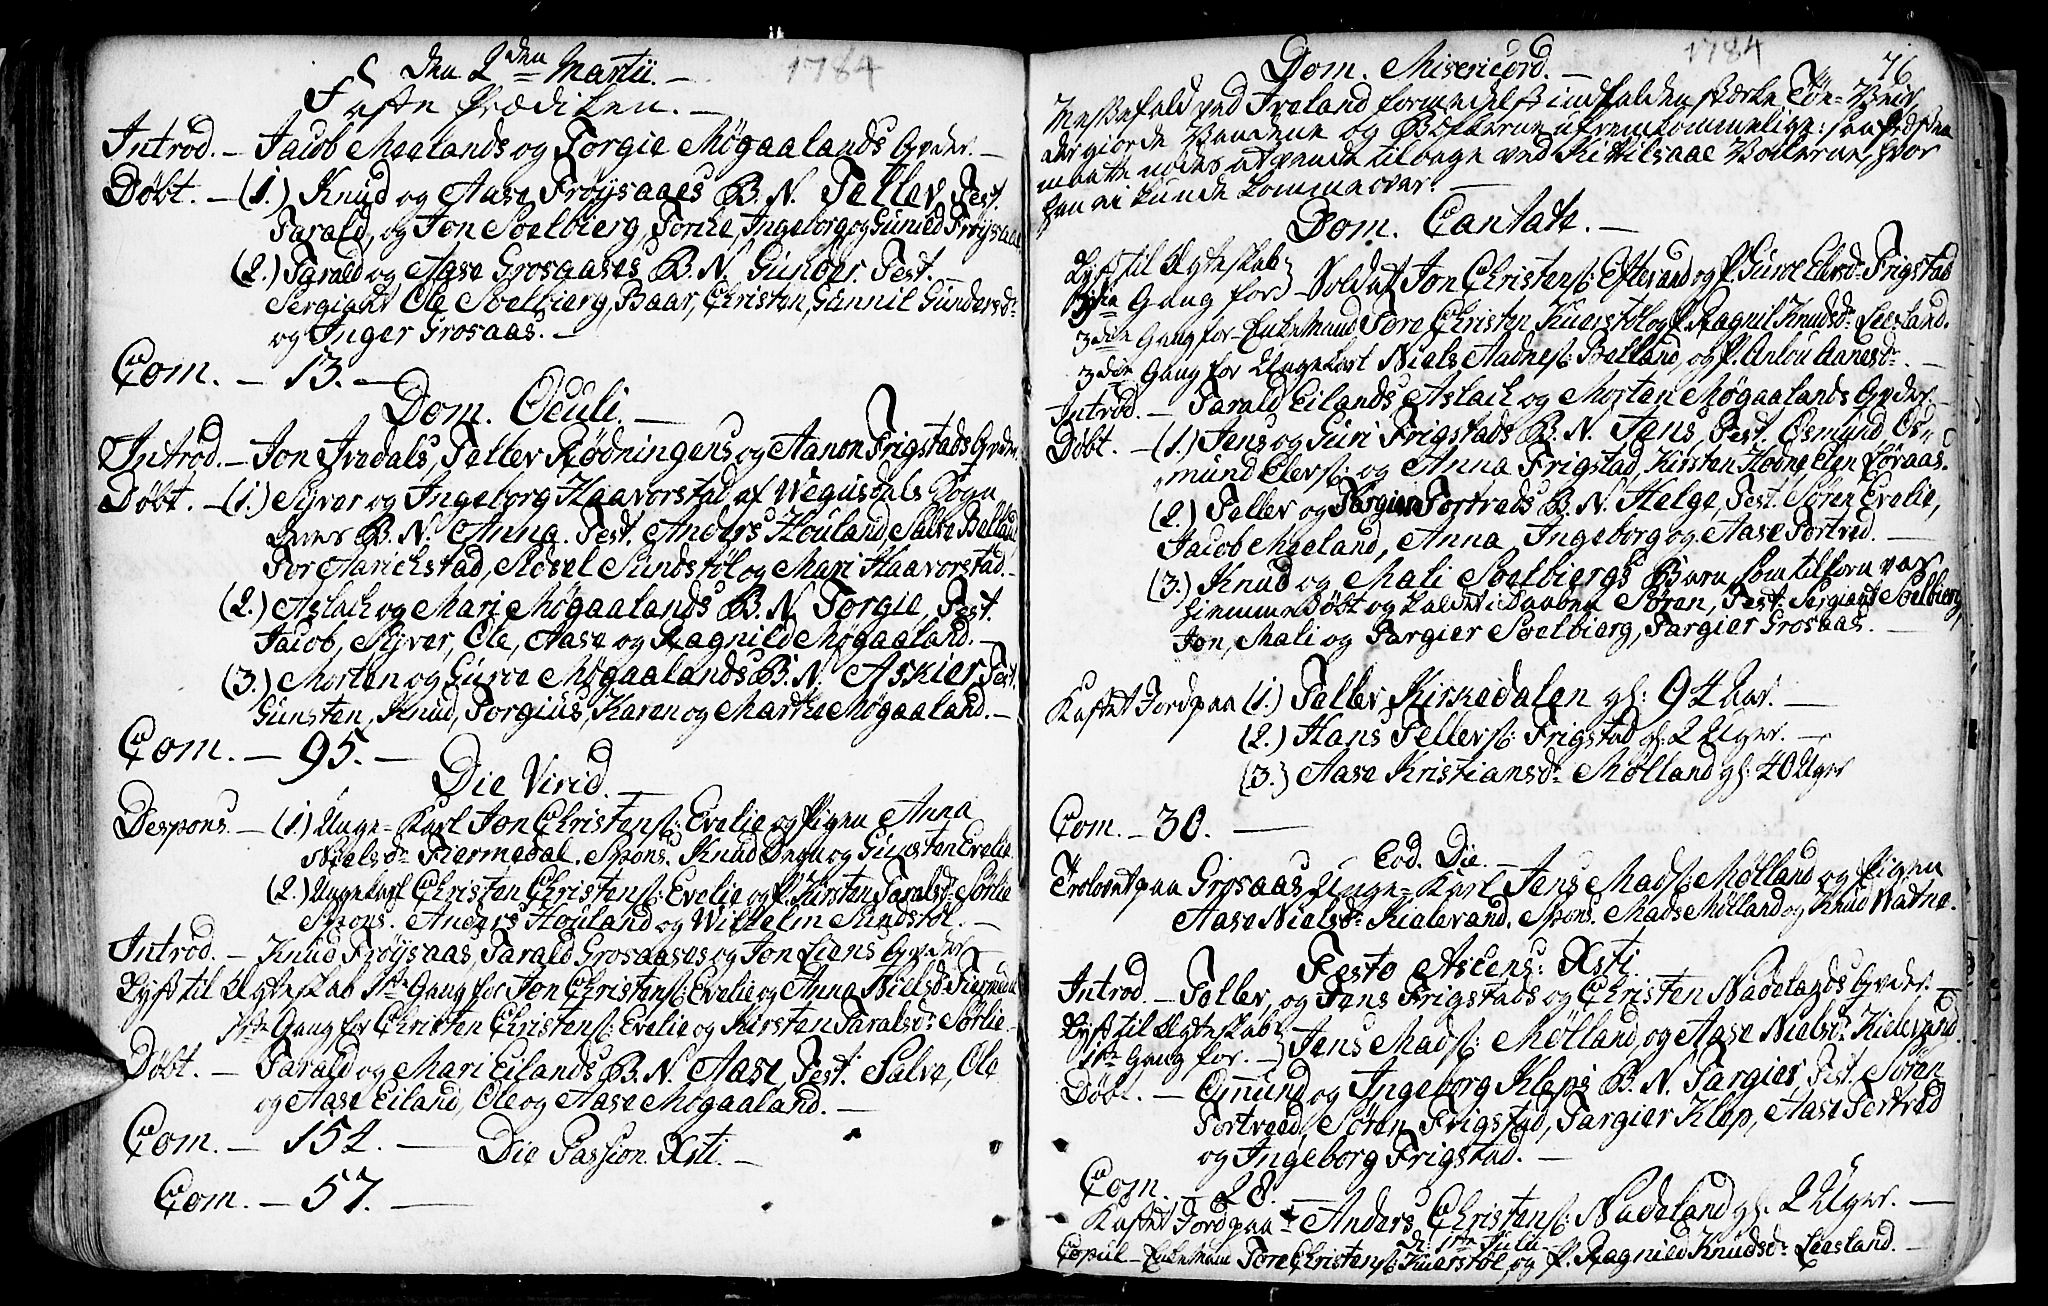 den 2den Martii. — 1784
Faste Prædiken. —
Introd. — Jacob Mælands og Torgie Møgaalands Qvder. —
Døbt. — (1.) Knud og Aase Frøysaaes B. N. Tellev, Test.
Tarald, og Jon Soelbierg, Torke, Ingeborg og Gunild Frøysaas
(2.) Tarald og Aase Grosaases B. N. Gunder. Test.
Sergiant Ole Soelbierg, Baar, Christen, Gunnil Gundersdr
og Inger Grosaas. —
Com. — 13. —
Dom. Oculi. —
Introd. — Jon Ivedals, Tellev Rødningens og Aanon Frigstads Qvder.
Døbt. — (1.) Syver og Ingeborg Haavorstad af Wegusdals Sogn
deres B. N. Anna. Test. Anders Houland, Salve Belland,
Tor Aarichstad, Sidsel Sundstøl og Mari Haavorstad. —
(2.) Aslach og Mari Møgaalands B. N. Torgie, Test.
Jacob, Syver, Ole, Aase og Ragnild Møgaaland. —
(3.) Morten og Guroe Møgaalands B. N. Askier, Test.
Gunsten, Knud, Torgius, Karen og Marthe Møgaaland. —
Com. — 95. —
Die Virid. —
Despons. — (1.) Unge-Karl Jon Christens: Evelie og Pigen Anna
Nielsdr Fiermedal. Spons. Knud Degn og Gunsten Evelie.
(2.) Ungekarl Christen Christens: Evelie og P. Kirsten Taralsdr Sørlie
Spons. Anders Houland og Wilhelm Sundstøl. —
Introd. — Knud Frøysaas, Tarald Grosaases og Jon Liens Qvder —
Lyst til Ægteskab 1ste Gang for Jon Christens: Evelie og Anna Nielsdr Fiermed
1ste Gang for Christen Christens: Evelie og Kirsten Taralsdr Sørlie —
Døbt. — Tarald og Mari Eilands B. N. Aase, Test. Salve, Ole
og Aase Eiland, Ole og Aase Møgaaland. —
Com. — 154. —
Die Passion. Xsti. —
Com. — 57. —
Dom. Misericord. — 1784 76
Messefald ved Iveland formedelst indfalden stærke Tøe-Veir,
der giorde Vandene og Bækkene ufremkommelige: saa Præsten
maatte nødes at vende tilbage ved Kitilsaae, hvor
han ei kunde komme over. —
Dom. Cantate. —
Lyst til Ægteskab
Gang for — Soldat Jon Christens: Eftevand og P. Guroe Elevsdr Frigstad
3die Gang for Enkemand Tore Christens Kuerstøl og P. Ragnil Knudsdr Leesland.
3die Gang for Ungekarl Niels Aadnes: Belland, og P. Anlou Aanesdr —
Introd. — Tarald Eilands, Aslach og Morten Møgaalands Qvder —
Døbt. — (1.) Jens og Guri Frigstads B. N. Jens, Test. Osmund, Os-
mund Elevs: og Anna Frigstad, Kirsten Hodne, Elen Løraas.
(2.) Tellev og Torgier Tortveds B. N. Helge, Test. Søren Evelie,
Jacob Mæland, Anna Ingeborg og Aase Tortved. —
(3.) Knud og Mali Soelbiergs Barn som tilforn var
hiemmedøbt og kaldet i Daaben Søren, Test. Sergiant Soelbierg,
Jon, Mali og Targier Soelbierg, Targier Grosaas. —
Kastet Jord paa (1.) Tellev Kirkedalen gl: 94 Aar. —
(2.) Hans Tellevs: Frigstad gl: 2 Uger. —
(3.) Aase Kristiansdr Mølland gl: 40 Uger
Com. — 30. —
Eod. Die. —
Trolovet paa Grosaas Unge-Karl Jens Mads: Mølland og Pigen
Aase Nielsdr Kielevand. Spons. Mads Mølland og Knud Watne.
Festo Ascens: Xsti.
Introd. — Tellev, og Jens Frigstads og Christen Nadelands Qvder. —
Lyst til Ægteskab
1ste Gang for. — Jens Mads: Mølland, og Aase Nielsdr Kielevand
Døbt. — Omund og Ingeborg Kleps B. N. Targier, Test. Søren
Tortveed, Søren Frigstad, Targier Klep, Aase Tortved
og Ingeborg Frigstad. —
Com. — 28. —
Kastet Jord paa — Anders Christens: Nadeland gl: 2 Uger. —
d: 1ste Julii
Copul — Enkemand Tore Christens: Kuerstøl, og P. Ragnild Knudsdr Leesland. —